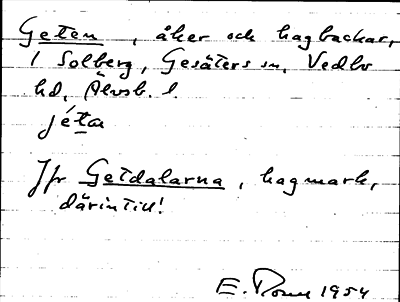 Geten, åker och hagbackar,
i Solberg, Gesäters sn, Vedbo
hd, Älvsb. l.
jéta
Jfr Getdalarna, hagmark,
därintill!
E. 1954